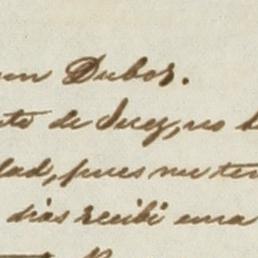 un Dubos.
to de Suez, no
dad, pues me ten
dias recibi una